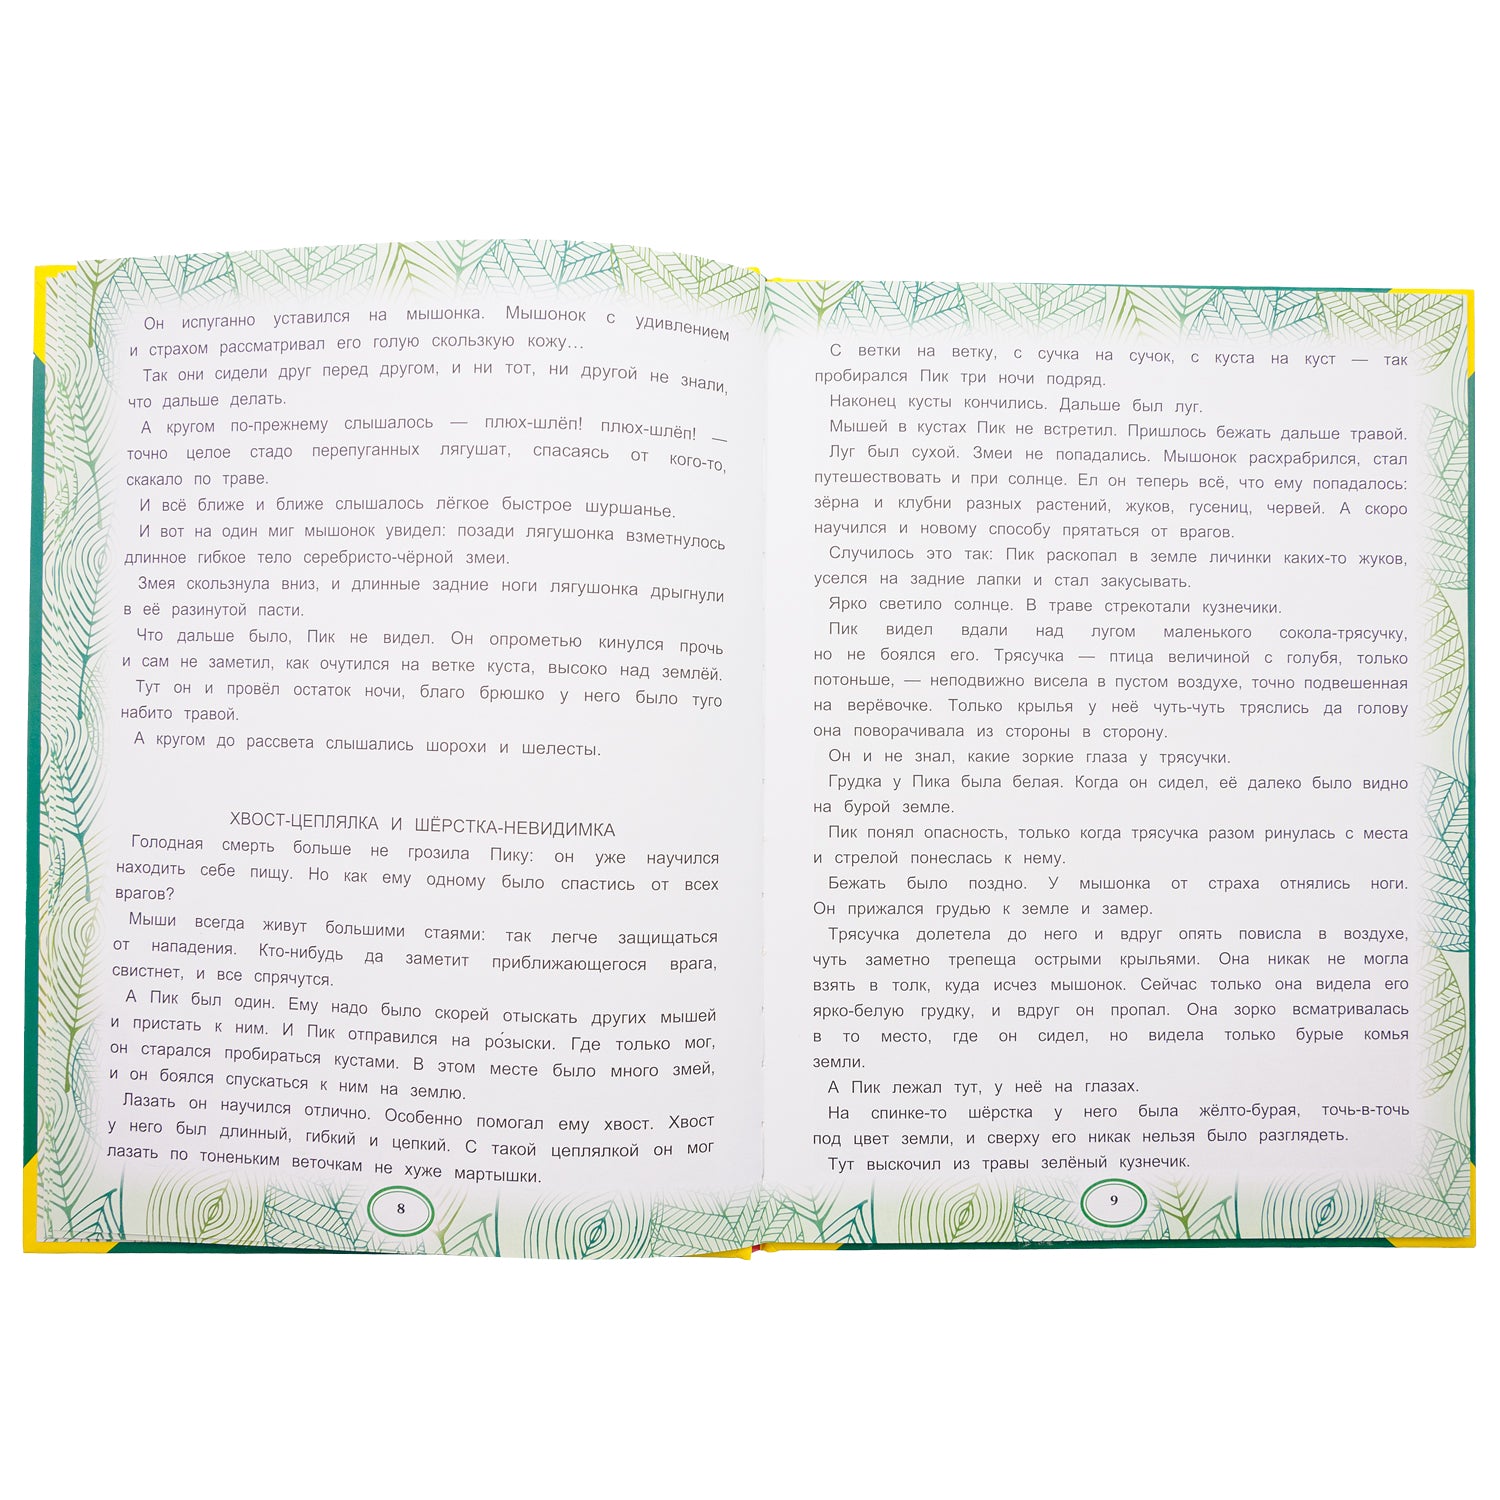 Он испуганно уставился на мышонка. Мышонок с удивлением
и страхом рассматривал его голую скользкую кожу…
Так они сидели друг перед другом, и ни тот, ни другой не знали,
что дальше делать.
А кругом по-прежнему слышалось — плюх-шлёп! плюх-шлёп! —
точно целое стадо перепуганных лягушат, спасаясь от кого-то,
скакало по траве.
И всё ближе и ближе слышалось лёгкое быстрое шуршанье.
И вот на один миг мышонок увидел: позади лягушонка взметнулось
длинное гибкое тело серебристо-чёрной змеи.
Змея скользнула вниз, и длинные задние ноги лягушонка дрыгнули
в её разинутой пасти.
Что дальше было, Пик не видел. Он опрометью кинулся прочь
и сам не заметил, как очутился на ветке куста, высоко над землёй.
Тут он и провёл остаток ночи, благо брюшко у него было туго
набито травой.
А кругом до рассвета слышались шорохи и шелесты.
ХВОСТ-ЦЕПЛЯЛКА И ШЁРСТКА-НЕВИДИМКА
Голодная смерть больше не грозила Пику: он уже научился
находить себе пищу. Но как ему одному было спастись от всех
врагов?
Мыши всегда живут большими стаями: так легче защищаться
от нападения. Кто-нибудь да заметит приближающегося врага,
свистнет, и все спрячутся.
А Пик был один. Ему надо было скорей отыскать других мышей
и пристать к ним. И Пик отправился на ро́зыски. Где только мог,
он старался пробираться кустами. В этом месте было много змей,
и он боялся спускаться к ним на землю.
Лазать он научился отлично. Особенно помогал ему хвост. Хвост
у него был длинный, гибкий и цепкий. С такой цеплялкой он мог
лазать по тоненьким веточкам не хуже мартышки.
8
С ветки на ветку, с сучка на сучок, с куста на куст — так
пробирался Пик три ночи подряд.
Наконец кусты кончились. Дальше был луг.
Мышей в кустах Пик не встретил. Пришлось бежать дальше травой.
Луг был сухой. Змеи не попадались. Мышонок расхрабрился, стал
путешествовать и при солнце. Ел он теперь всё, что ему попадалось:
зёрна и клубни разных растений, жуков, гусениц, червей. А скоро
научился и новому способу прятаться от врагов.
Случилось это так: Пик раскопал в земле личинки каких-то жуков,
уселся на задние лапки и стал закусывать.
Ярко светило солнце. В траве стрекотали кузнечики.
Пик видел вдали над лугом маленького сокола-трясучку,
но не боялся его. Трясучка — птица величиной с голубя, только
потоньше, — неподвижно висела в пустом воздухе, точно подвешенная
на верёвочке. Только крылья у неё чуть-чуть тряслись да голову
она поворачивала из стороны в сторону.
Он и не знал, какие зоркие глаза у трясучки.
Грудка у Пика была белая. Когда он сидел, её далеко было видно
на бурой земле.
Пик понял опасность, только когда трясучка разом ринулась с места
и стрелой понеслась к нему.
Бежать было поздно. У мышонка от страха отнялись ноги.
Он прижался грудью к земле и замер.
Трясучка долетела до него и вдруг опять повисла в воздухе,
чуть заметно трепеща острыми крыльями. Она никак не могла
взять в толк, куда исчез мышонок. Сейчас только она видела его
ярко-белую грудку, и вдруг он пропал. Она зорко всматривалась
в то место, где он сидел, но видела только бурые комья
земли.
А Пик лежал тут, у неё на глазах.
На спинке-то шёрстка у него была жёлто-бурая, точь-в-точь
под цвет земли, и сверху его никак нельзя было разглядеть.
Тут выскочил из травы зелёный кузнечик.
9